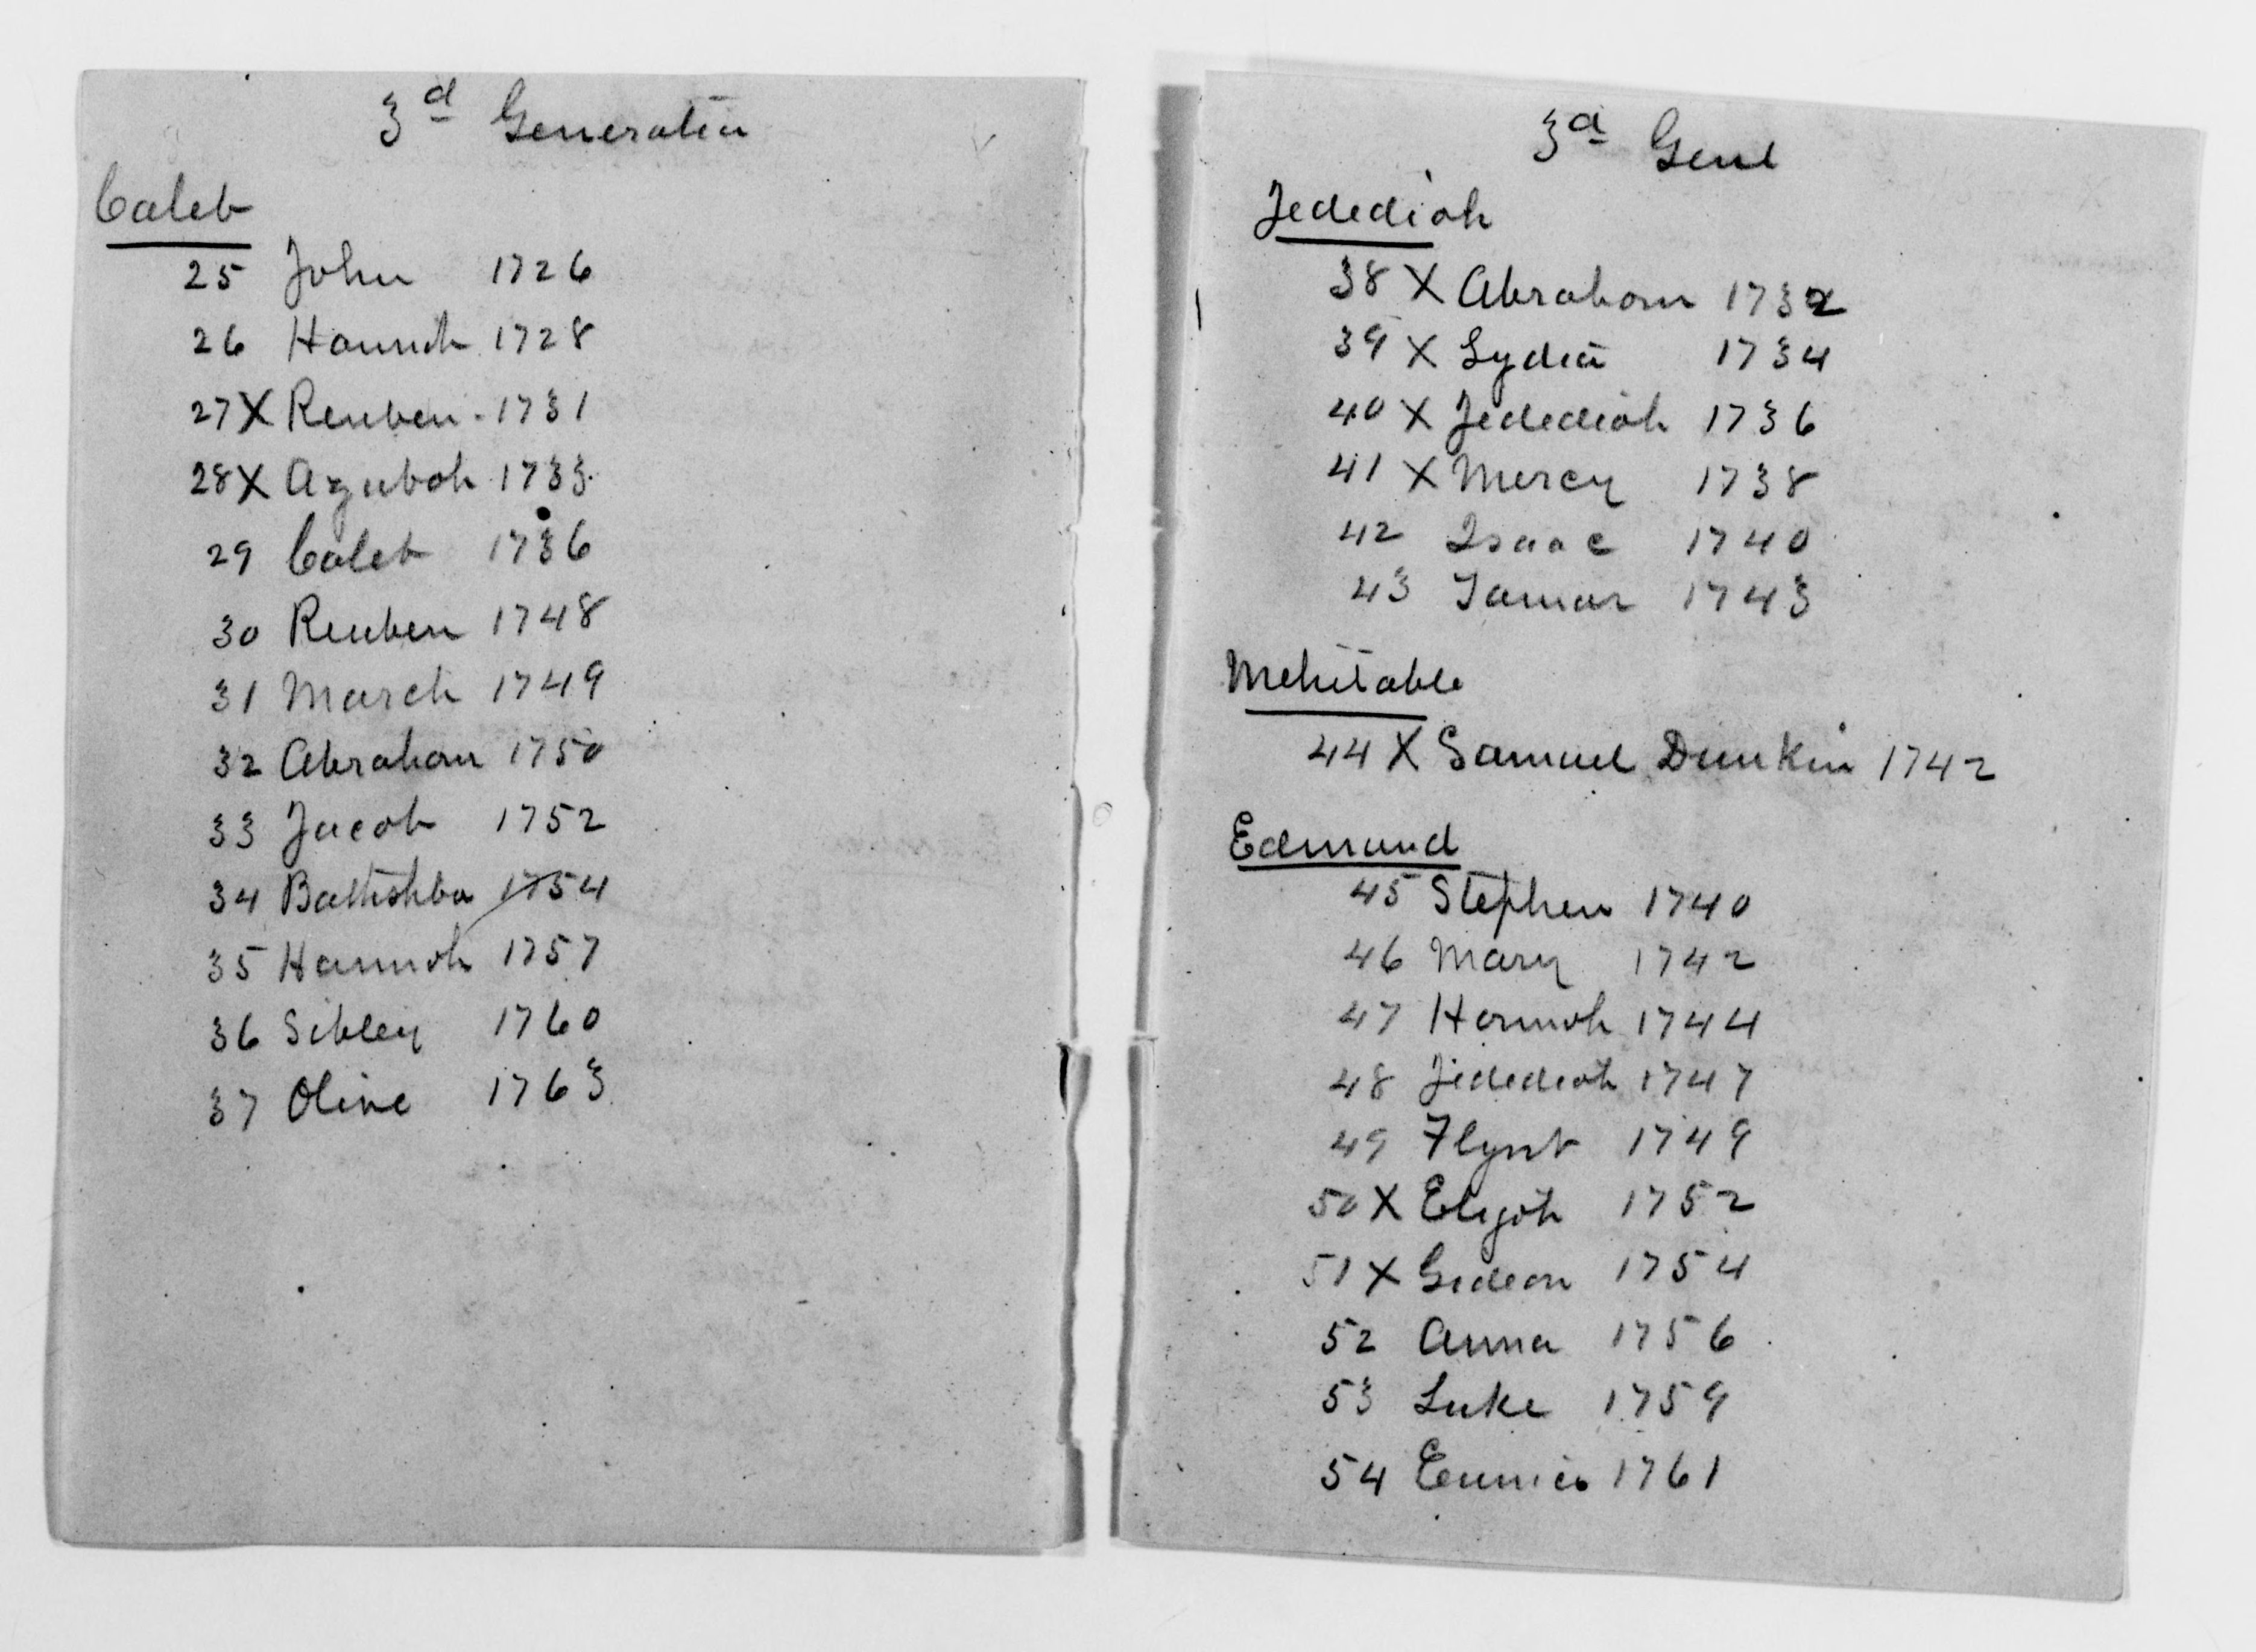 3d Generation
Caleb
25 John 1726
26 Hannah 1728
27 X Reuben - 1731
28 X Azubah 1733
29 Caleb 1736
30 Reuben 1748
31 March 1749
32 Abraham 1750
33 Jacob 1752
34 Bathshba 1754
35 Hannah 1757
36 Sibley 1760
37 Olive 1763
3d Genl
Jedediah
38 X Abraham 1732
39 X Lydia 1734
40 X Jedediah 1736
41 X Mercy 1738
42 Isaac 1740
43 Tamar 1743
Mehitable
44 X Samuel Dunkin 1742
Edmund
45 Stephen 1740
46 Mary 1742
47 Hannah 1744
48 Jedediah 1747
49 Flynt 1749
50 X Elijah 1752
51 X Gideon 1754
52 Anna 1756
53 Luke 1759
54 Eunice 1761